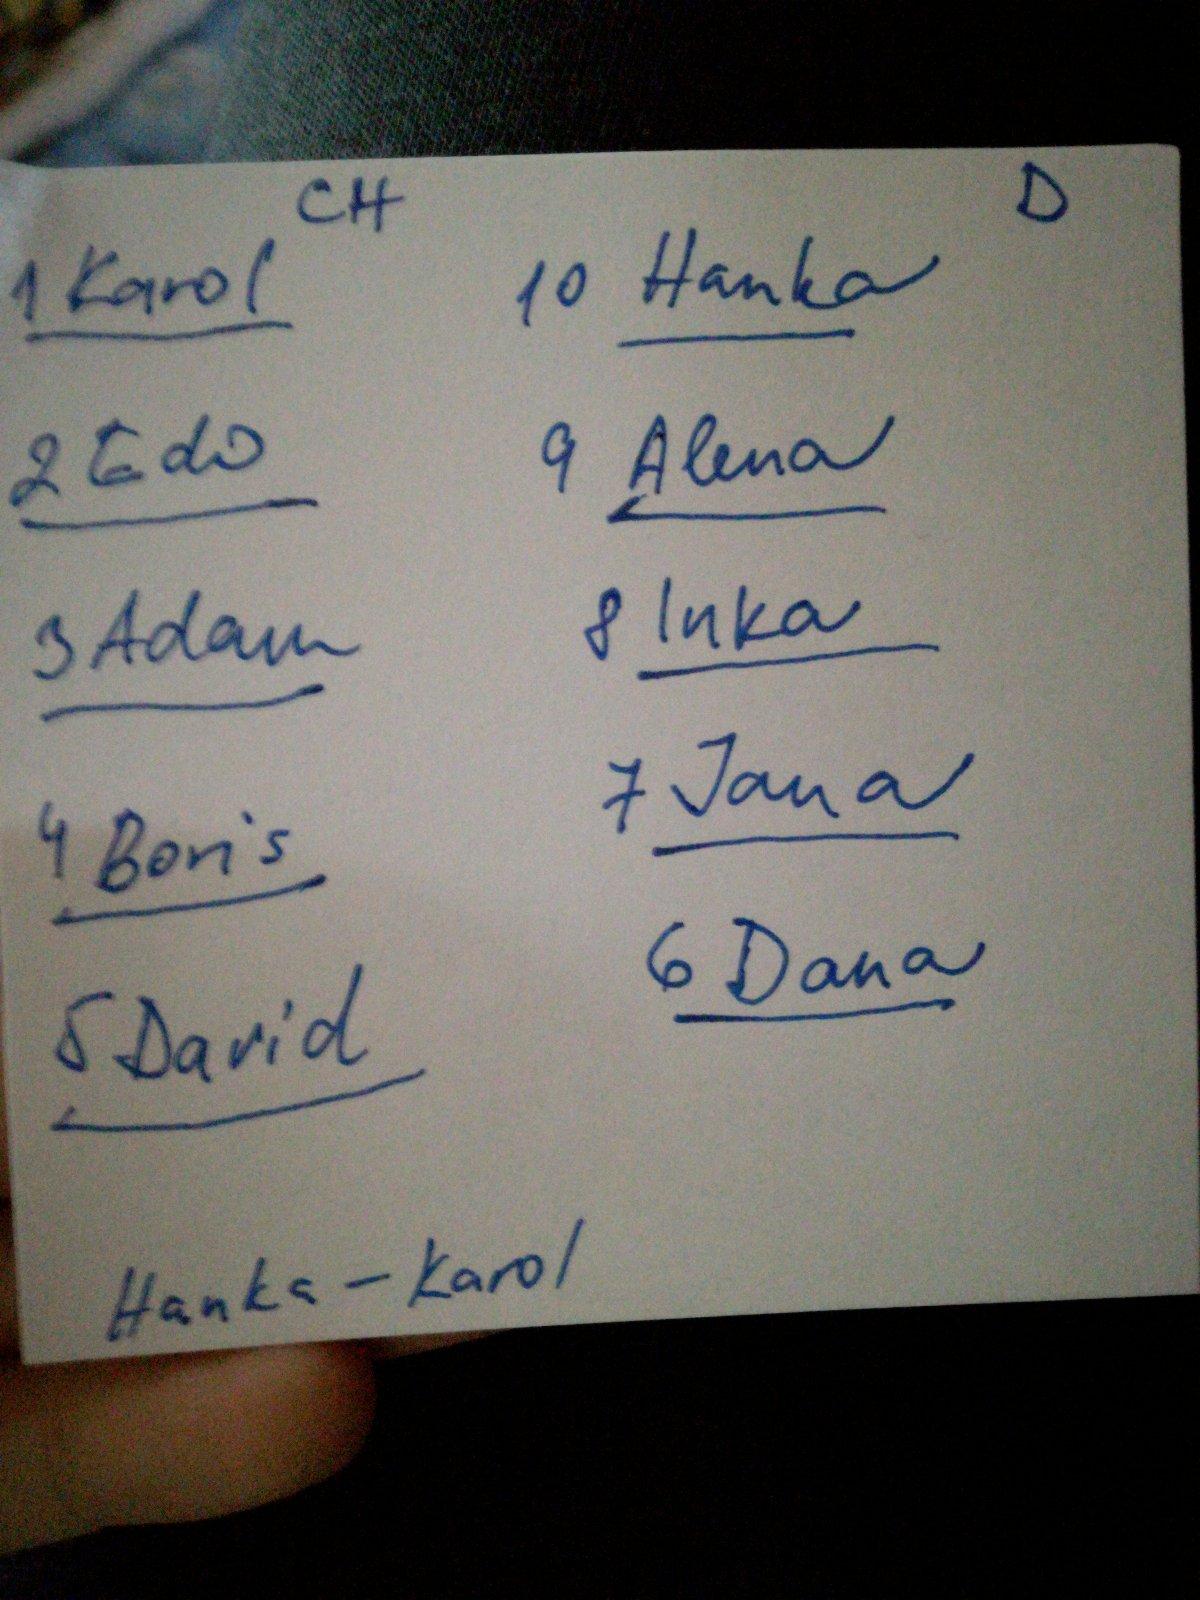 CH D
1 Karol 10 Hanka
2 Edo 9 Alena
3 Adam 8 Inka
4 Boris 7 Jana
5 David 6 Dana
Hanka - Karol